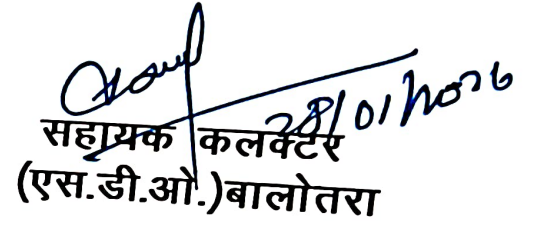 28/01/2026
सहायक कलक्टर
(एस.डी.ओ.)बालोतरा